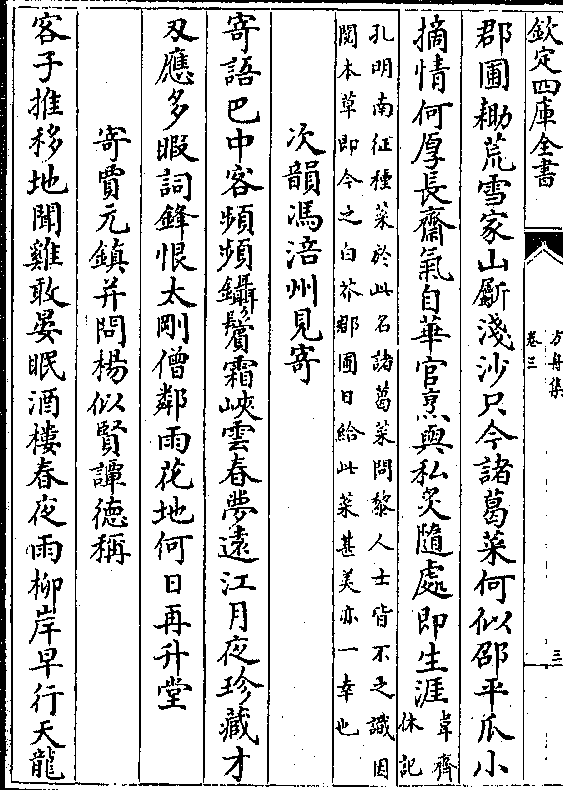 欽定四庫全書
方舟集
卷三
三
郡圃耡荒雪家山斸淺沙只今諸葛菜何似邵平瓜小
摘情何厚長齋氣自華官烹與私炙隨處即生涯
韋齊
休記
孔明南征種菜於此名諸葛菜問黎人士皆不之識因
閱本草即今之白芥郡圃日給此菜甚美亦一幸也
次韻馮涪州見寄
寄語巴中客頻頻鑷鬢霜峽雲春夢遠江月夜珍藏才
刄應多暇詞鋒恨太剛僧鄰雨花地何日再升堂
寄賈元鎮并問楊似賢譚德稱
客子推移地聞雞敢晏眠酒樓春夜雨柳岸早行天龍